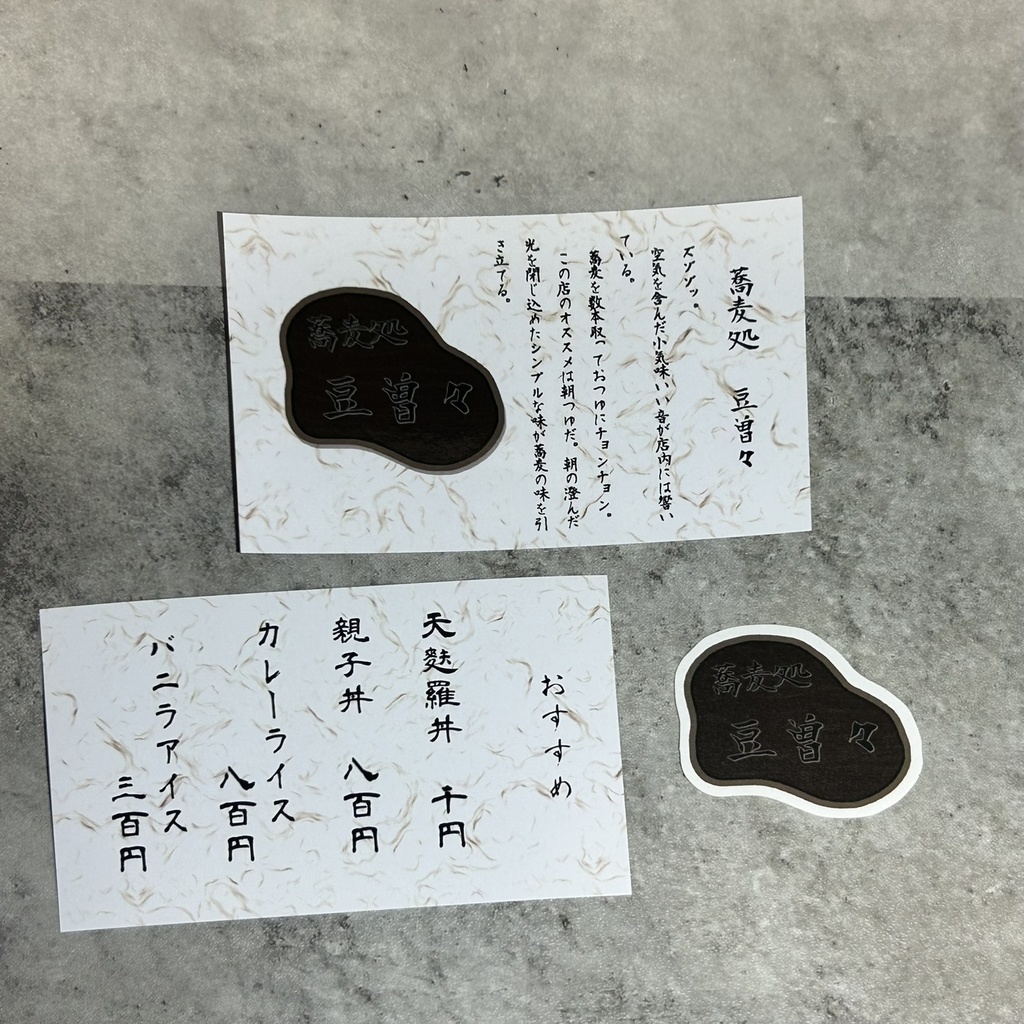 蕎麦処 豆曽々
ズゾゾッ。
空気を含んだ小気味いい音が店内には響い
ている。
蕎麦を数本取っておつゆにチョンチョン。
この店のオススメは朝つゆだ。朝の澄んだ
光を閉じ込めたシンプルな味が蕎麦の味を引
き立てる。
蕎麦処
豆曽々
おすすめ
天麩羅丼 千円
親子丼 八百円
カレーライス
八百円
バニラアイス
三百円
蕎麦処
豆曽々